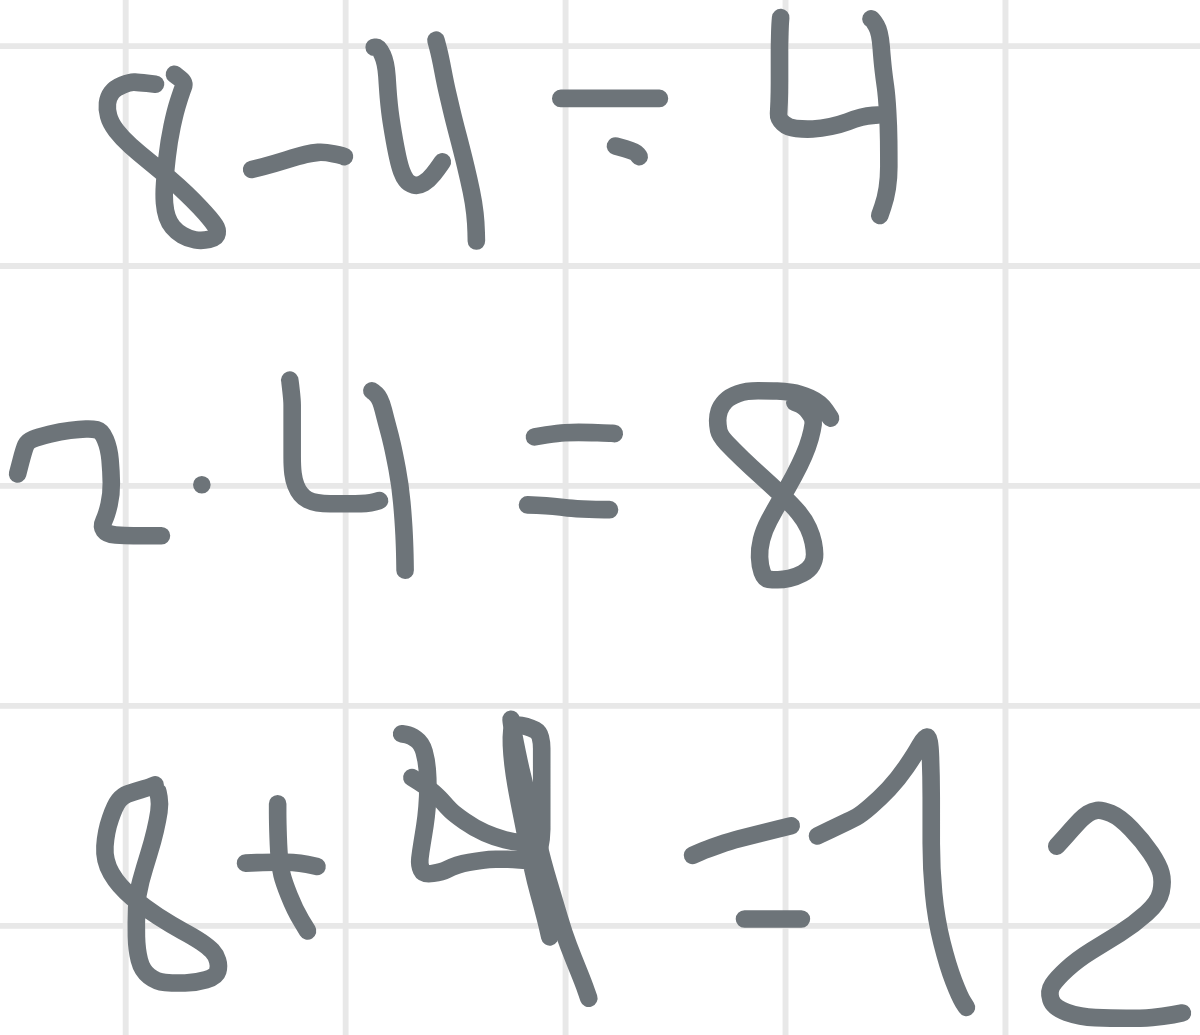 8-4=4
2·4=8
8+4=12